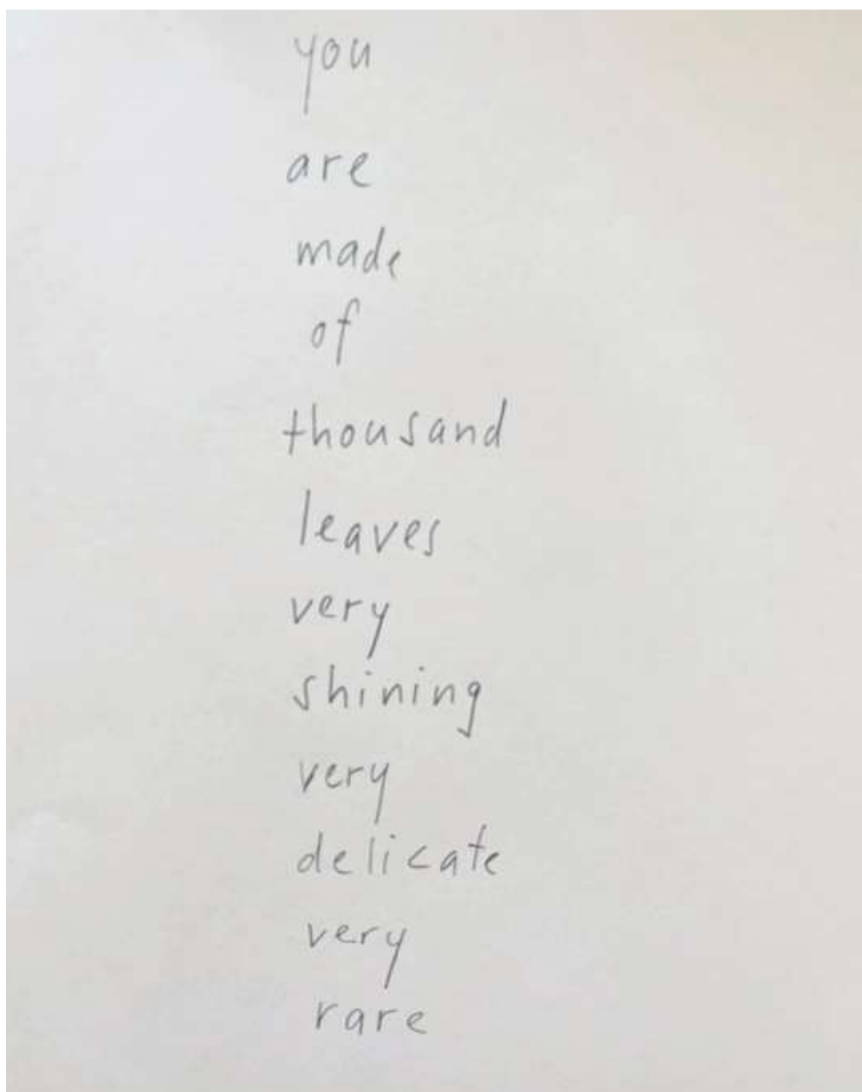 you
are
made
of
thousand
leaves
very
shining
very
delicate
very
rare